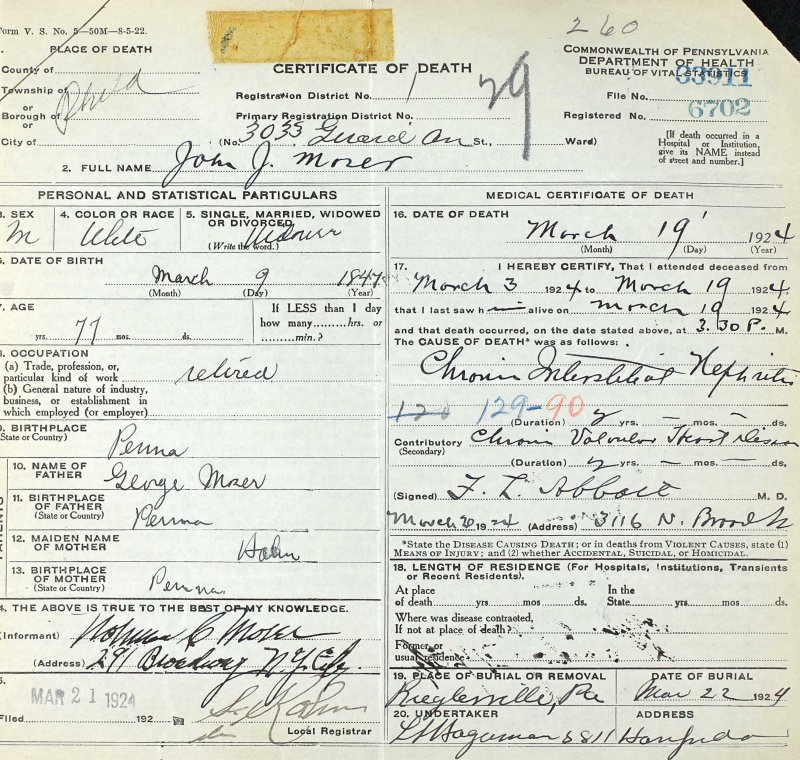 Form V. S. No. 5—50M—8-5-22.
260
PLACE OF DEATH
County of
Township of
or
Borough of
or
City of
Phila
CERTIFICATE OF DEATH
Registration District No. 1
Primary Registration District No.
29
(No. 3033 St., Ward)
COMMONWEALTH OF PENNSYLVANIA
DEPARTMENT OF HEALTH
BUREAU OF VITAL STATISTICS
File No. 33911
Registered No. 6702
[If death occurred in a
Hospital or Institution,
give its NAME instead
of street and number.]
2. FULL NAME John J. Moser
PERSONAL AND STATISTICAL PARTICULARS
3. SEX
M
4. COLOR OR RACE
White
5. SINGLE, MARRIED, WIDOWED
OR DIVORCED
(Write the word.)
Widower
6. DATE OF BIRTH
March 9 1847
(Month) (Day) (Year)
7. AGE
77 yrs. mos. ds.
If LESS than 1 day
how many......hrs. or
......min.?
8. OCCUPATION
(a) Trade, profession, or,
particular kind of work retired
(b) General nature of industry,
business, or establishment in
which employed (or employer)
9. BIRTHPLACE
(State or Country)
Penna
PARENTS
10. NAME OF
FATHER
George Moser
11. BIRTHPLACE
OF FATHER
(State or Country)
Penna
12. MAIDEN NAME
OF MOTHER
Hahn
13. BIRTHPLACE
OF MOTHER
(State or Country)
Penna
14. THE ABOVE IS TRUE TO THE BEST OF MY KNOWLEDGE.
(Informant) Norman C. Moser
(Address) 291 Broadway N.Y. City
15.
MAR 21 1924
Filed 192
Local Registrar
MEDICAL CERTIFICATE OF DEATH
16. DATE OF DEATH
March 19 1924
(Month) (Day) (Year)
17. I HEREBY CERTIFY, That I attended deceased from
March 3 1924 to March 19 1924,
that I last saw him alive on March 19 1924
and that death occurred, on the date stated above, at 3.30 P. M.
The CAUSE OF DEATH* was as follows:
Chronic Interstitial Nephritis
120 129-90
(Duration) yrs. — mos. — ds.
Contributory Chronic Valvular Heart Disease
(Secondary)
(Duration) yrs. — mos. — ds.
(Signed) F. L. Abbott M. D.
March 20 1924 (Address) 3116 N. Broad St
*State the DISEASE CAUSING DEATH; or in deaths from VIOLENT CAUSES, state (1)
MEANS OF INJURY; and (2) whether ACCIDENTAL, SUICIDAL, or HOMICIDAL.
18. LENGTH OF RESIDENCE (For Hospitals, Institutions, Transients
or Recent Residents).
At place
of death yrs. mos. ds.
In the
State yrs. mos. ds.
Where was disease contracted,
If not at place of death?
Former or
usual residence
19. PLACE OF BURIAL OR REMOVAL
Rieglesville, Pa
DATE OF BURIAL
Mar 22 1924
20. UNDERTAKER
ADDRESS